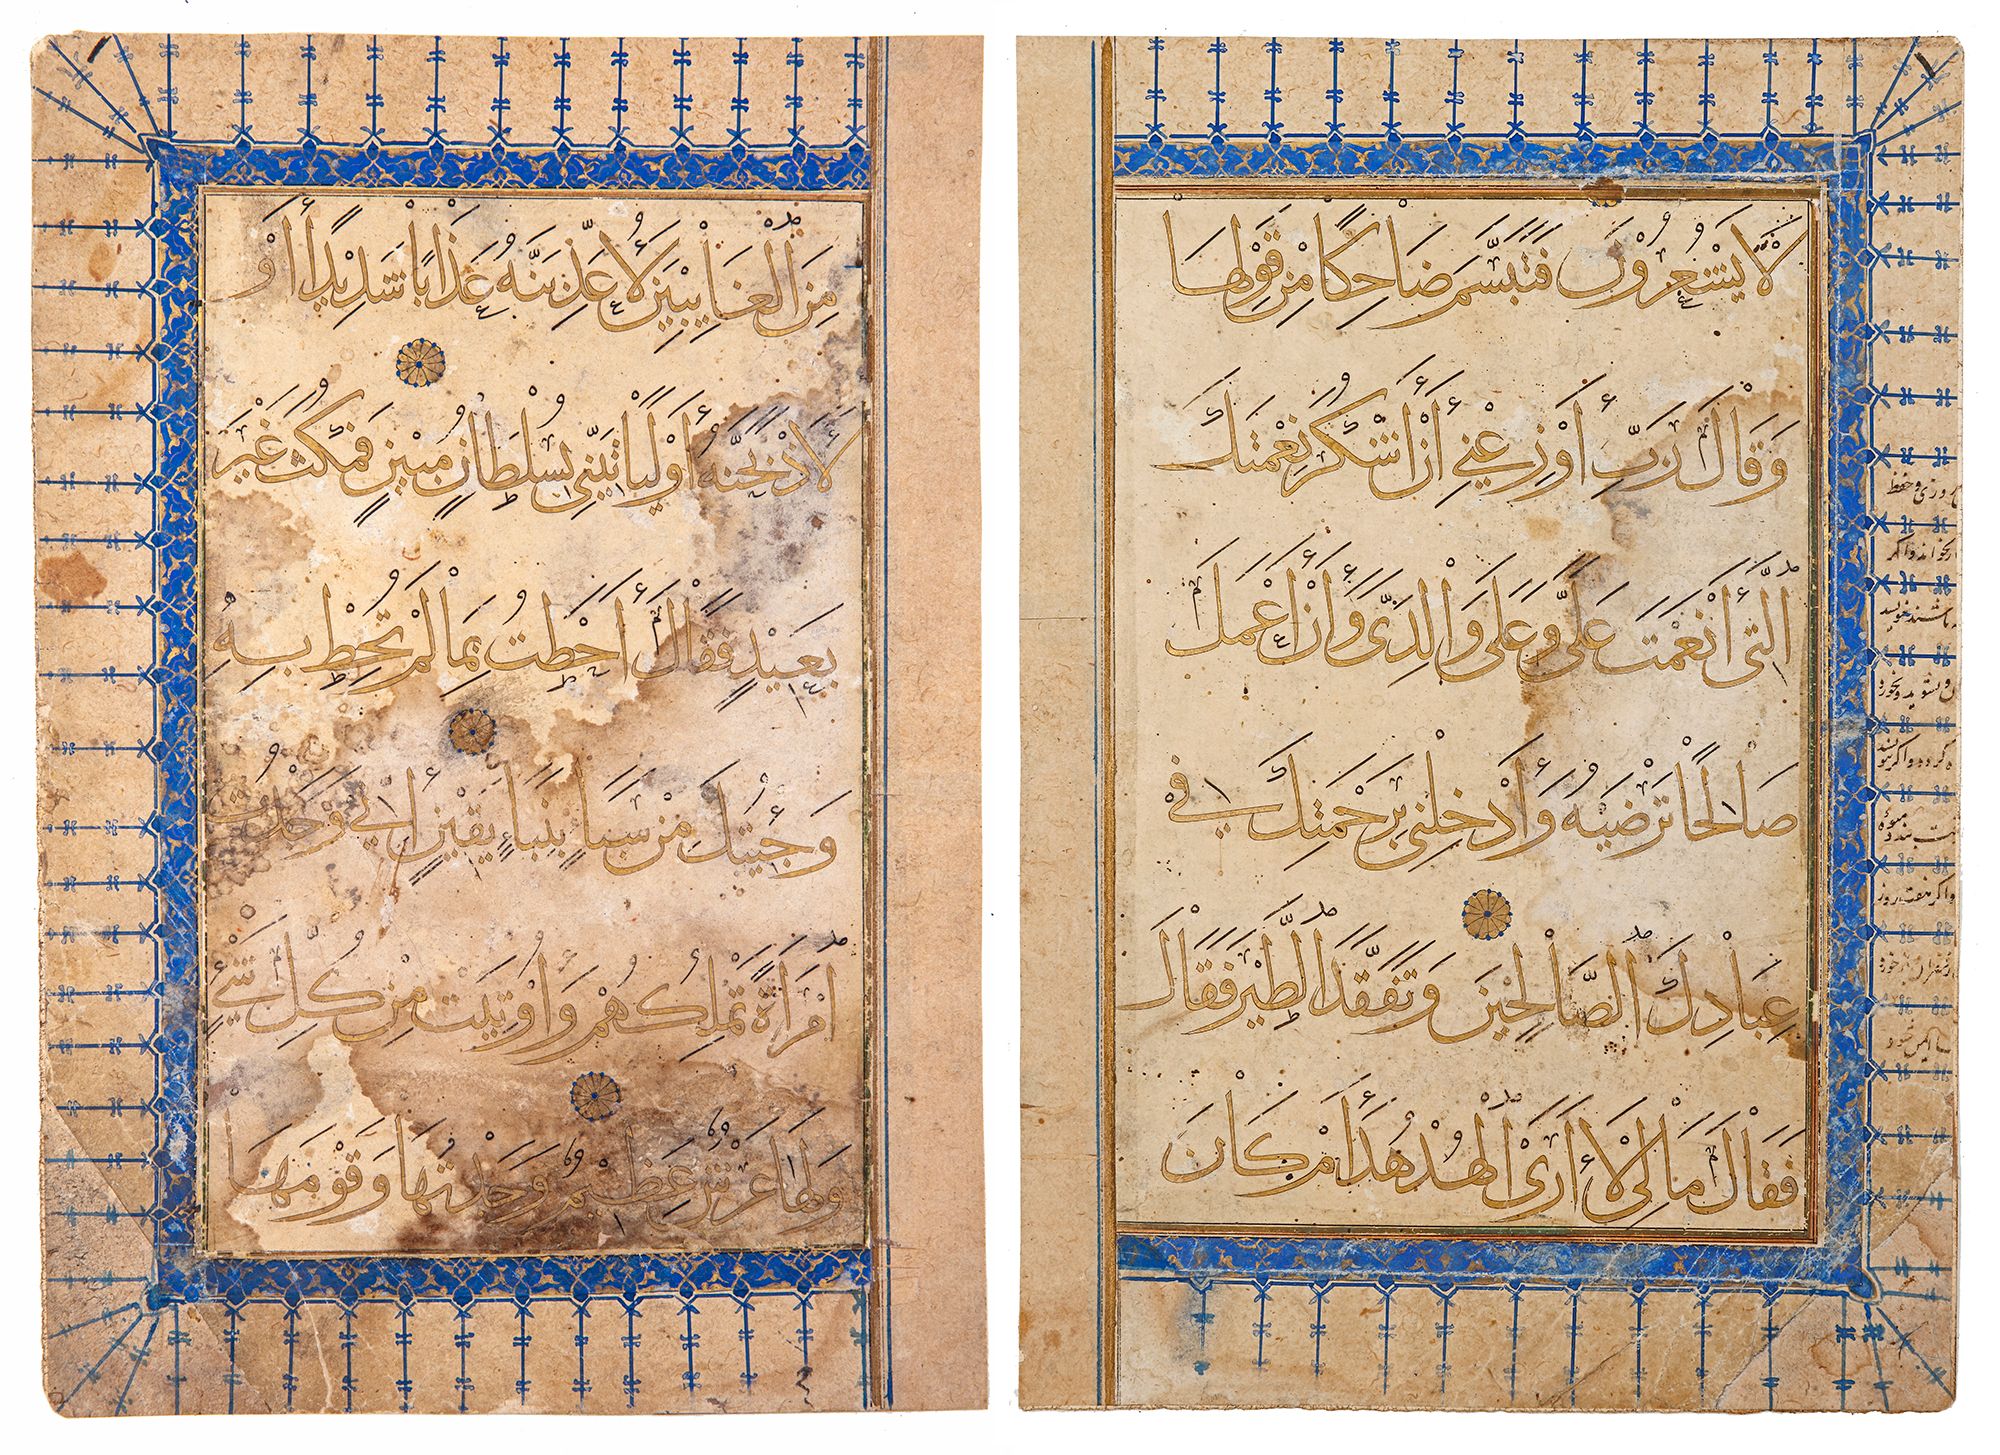 لَّا يَشْعُرُوْنَ فَتَبَسَّمَ ضَاحِكًا مِنْ قَوْلِهَا
وَقَالَ رَبِّ أَوْزِعْنِي أَنْ أَشْكُرَ نِعْمَتَكَ
الَّتِي أَنْعَمْتَ عَلَيَّ وَعَلَى وَالِدَيَّ وَأَنْ أَعْمَلَ
صَالِحًا تَرْضَيهُ وَأَدْخِلْنِي بِرَحْمَتِكَ فِي
عِبَادِكَ الصَّالِحِيْنَ وَتَفَقَّدَ الطَّيْرَ فَقَالَ
فَقَالَ مَا لِيَ لَا أَرَى الْهُدْهُدَ أَمْ كَانَ
روزی و حفظ
بخواند و اگر
واگر هفت روز
مِنَ الْغَايِبِيْنَ لَأُعَذِّبَنَّهُ عَذَابًا شَدِيْدًا أَوْ
لَأَذْبَحَنَّهُ أَوْ لَيَأْتِيَنِّي بِسُلْطَانٍ مُبِيْنٍ فَمَكُثَ غَيْرَ
بَعِيْدٍ فَقَالَ أَحَطْتُ بِمَا لَمْ تُحِطْ بِهِ
وَجِئْتُكَ مِنْ سَبَإٍ بِنَبَإٍ يَقِيْنٍ إِنِّي وَجَدْتُ
امْرَأَةً تَمْلِكُهُمْ وَأُوتِيَتْ مِنْ كُلِّ شَيْءٍ
وَلَهَا عَرْشٌ عَظِيْمٌ وَجَدْتُهَا وَقَوْمَهَا